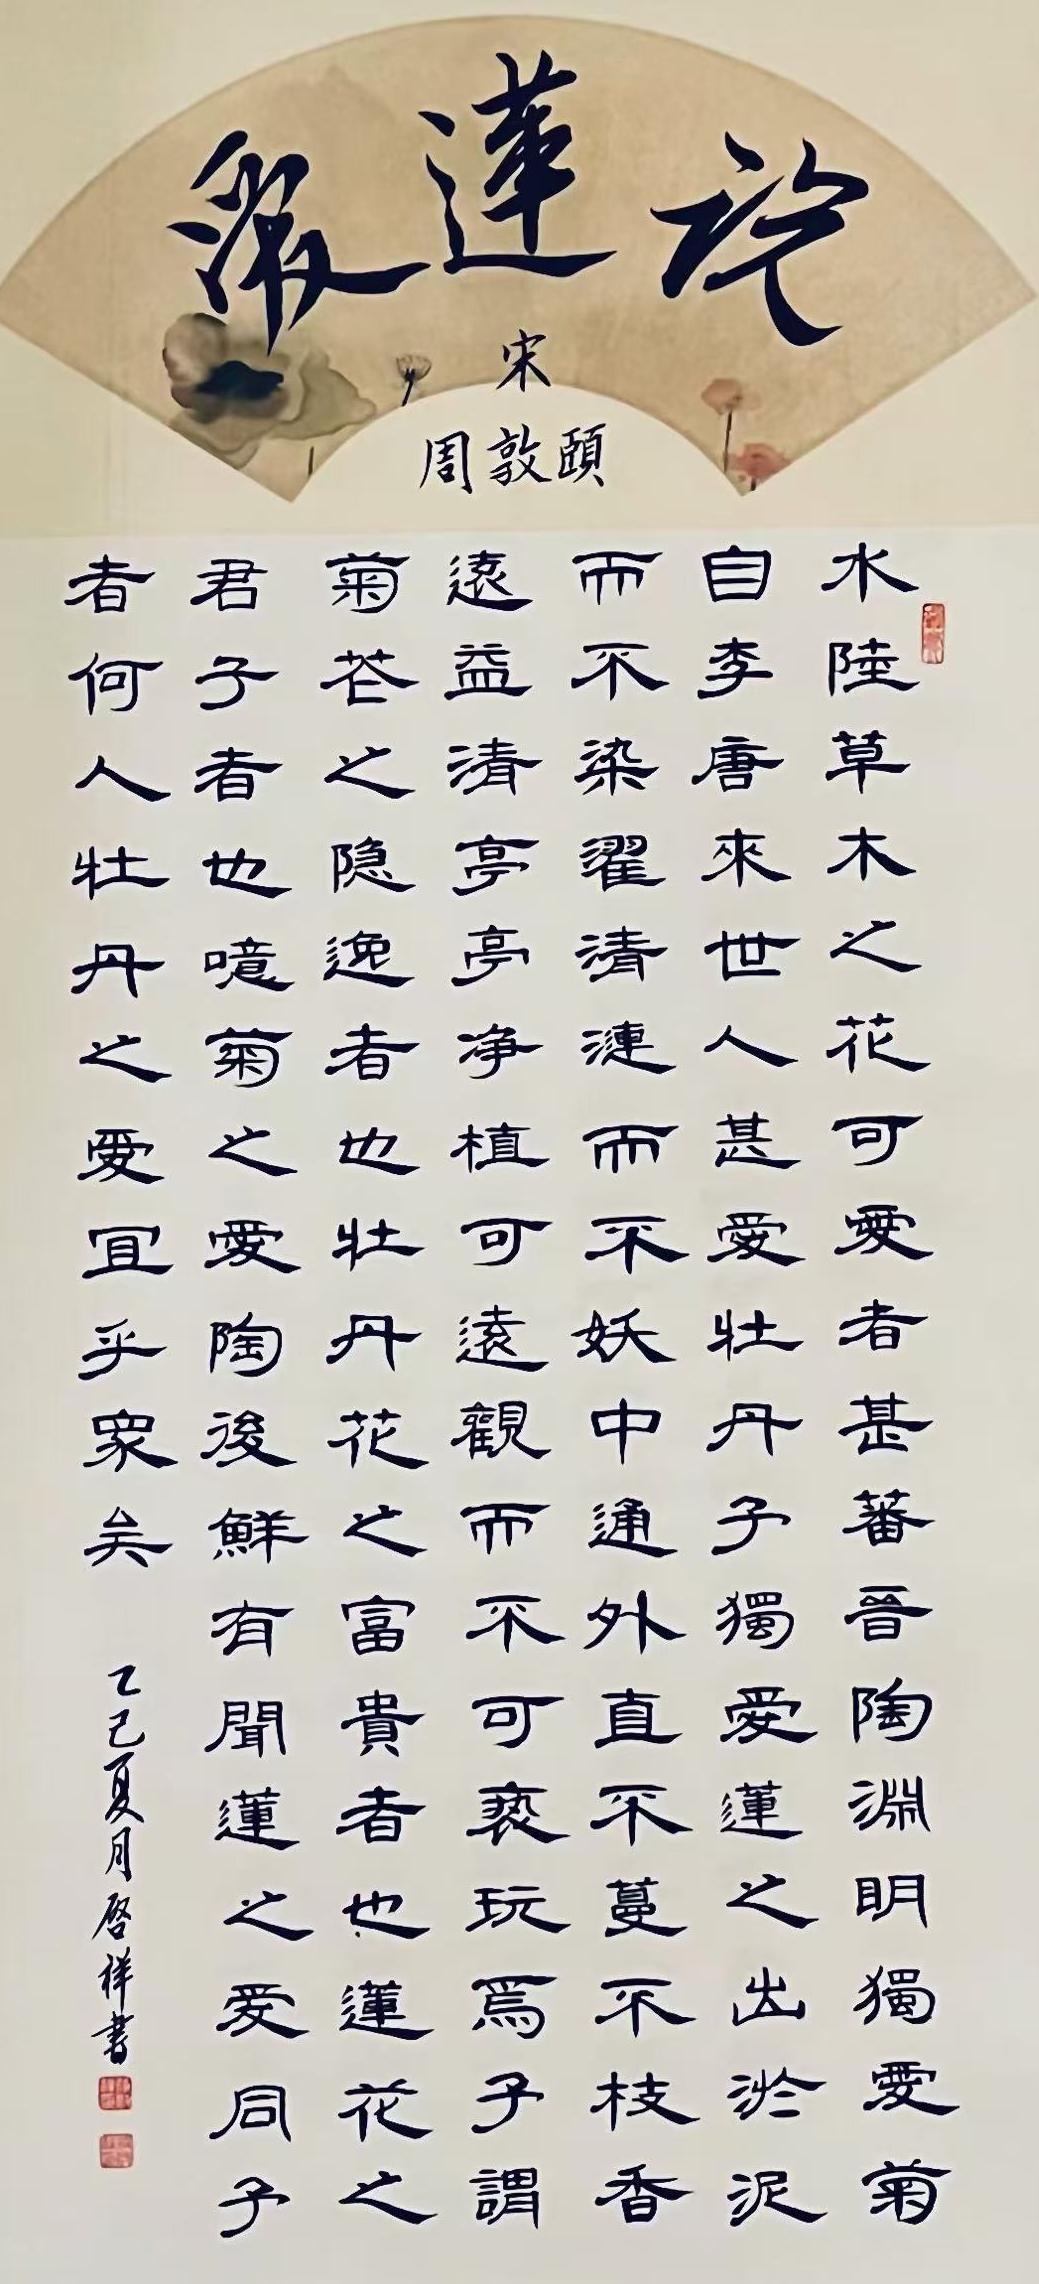 愛蓮説
宋
周敦頤
水陸草木之花可愛者甚蕃晉陶淵明獨愛菊
自李唐來世人甚愛牡丹子獨愛蓮之出淤泥
而不染濯清漣而不妖中通外直不蔓不枝香
遠益清亭亭净植可遠觀而不可亵玩焉予謂
菊花之隐逸者也牡丹花之富貴者也蓮花之
君子者也噫菊之愛陶後鮮有聞蓮之爱同予
者何人牡丹之愛宜乎衆矣
乙巳夏月啓祥書